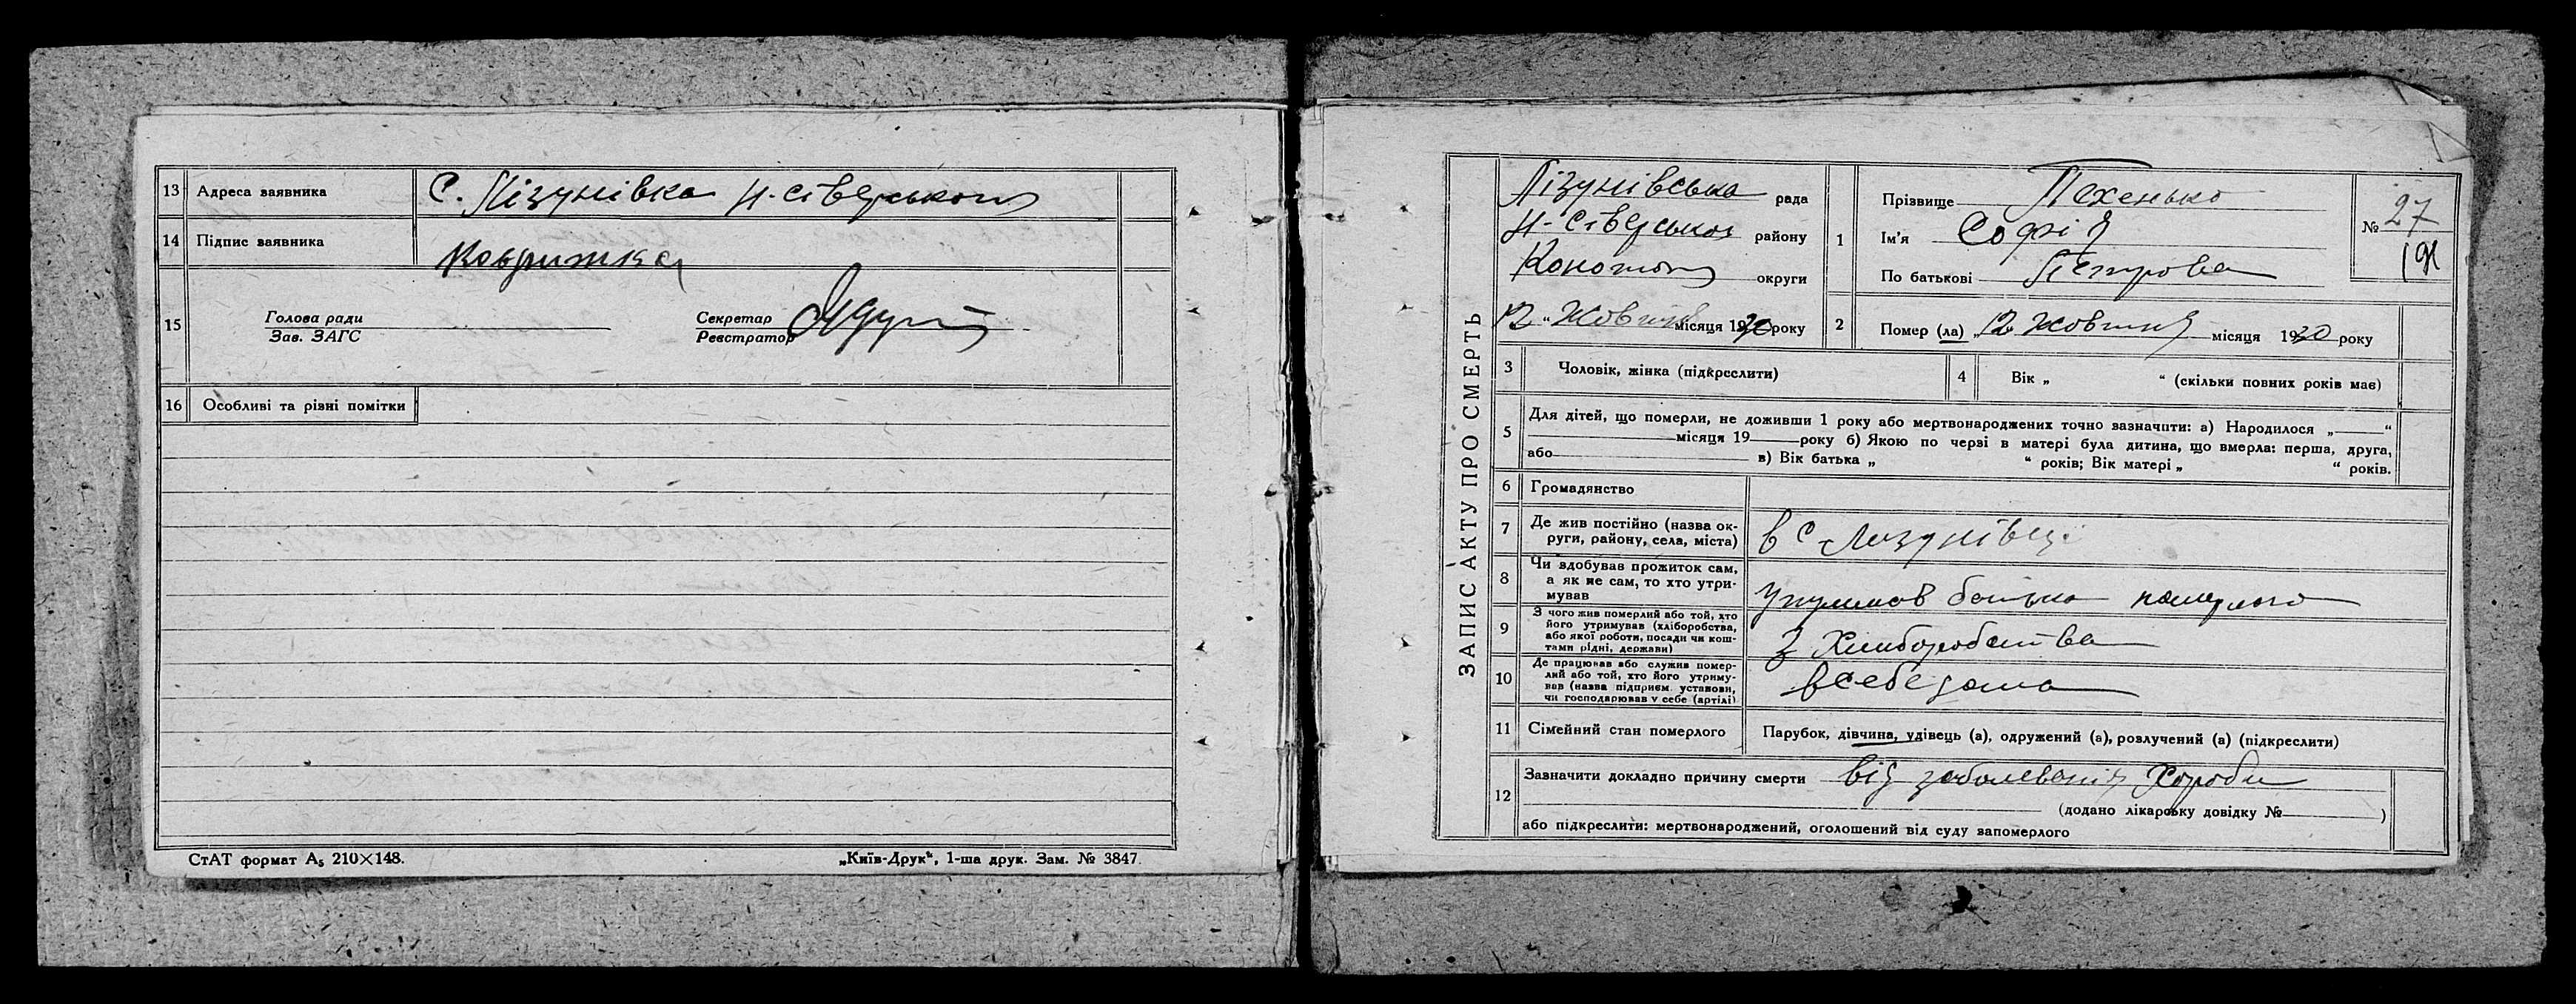 13 Адреса заявника С. Лізунівка Н-сіверського
14 Підпис заявника Коврижка
15 Голова ради
Зав. ЗАГС
Секретар
Реєстратор
16 Особливі та різні помітки
СтАТ формат А₅ 210×148.
„Київ-Друк“, 1-ша друк. Зам. № 3847.
ЗАПИС АКТУ ПРО СМЕРТЬ
Лізунівська рада
Н-Сіверського району
Конотоп округи
12 „ Жовтня місяця 1930 року
1 Прізвище Пехенько
Ім'я Софія
По батькові Петрова
№ 27
191
2 Помер (ла) „ 12 жовтня місяця 1930 року
3 Чоловік, жінка (підкреслити)
4 Вік „ “ (скільки повних років має)
5 Для дітей, що померли, не доживши 1 року або мертвонароджених точно зазначити: а) Народилося „ “
місяця 19 року б) Якою по черзі в матері була дитина, що вмерла: перша, друга,
або в) Вік батька „ “ років; Вік матері „ “ років.
6 Громадянство
7 Де жив постійно (назва ок-
руги, району, села, міста) в с Лизунівці
8 Чи здобував прожиток сам,
а як не сам, то хто утри-
мував батько помершого
9 З чого жив померлий або той, хто
його утримував (хліборобства,
або якої роботи, посади чи кош-
тами рідні, держави) з Хлиборобства
10 Де працював або служив помер-
лий або той, хто його утриму-
вав (назва підприєм. установи,
чи господарював у себе (артілі) в себе дома
11 Сімейний стан померлого Парубок, дівчина, удівець (а), одружений (а), розлучений (а) (підкреслити)
12 Зазначити докладно причину смерти від заболеванія Хороби
(додано лікарську довідку № )
або підкреслити: мертвонароджений, оголошений від суду запомерлого